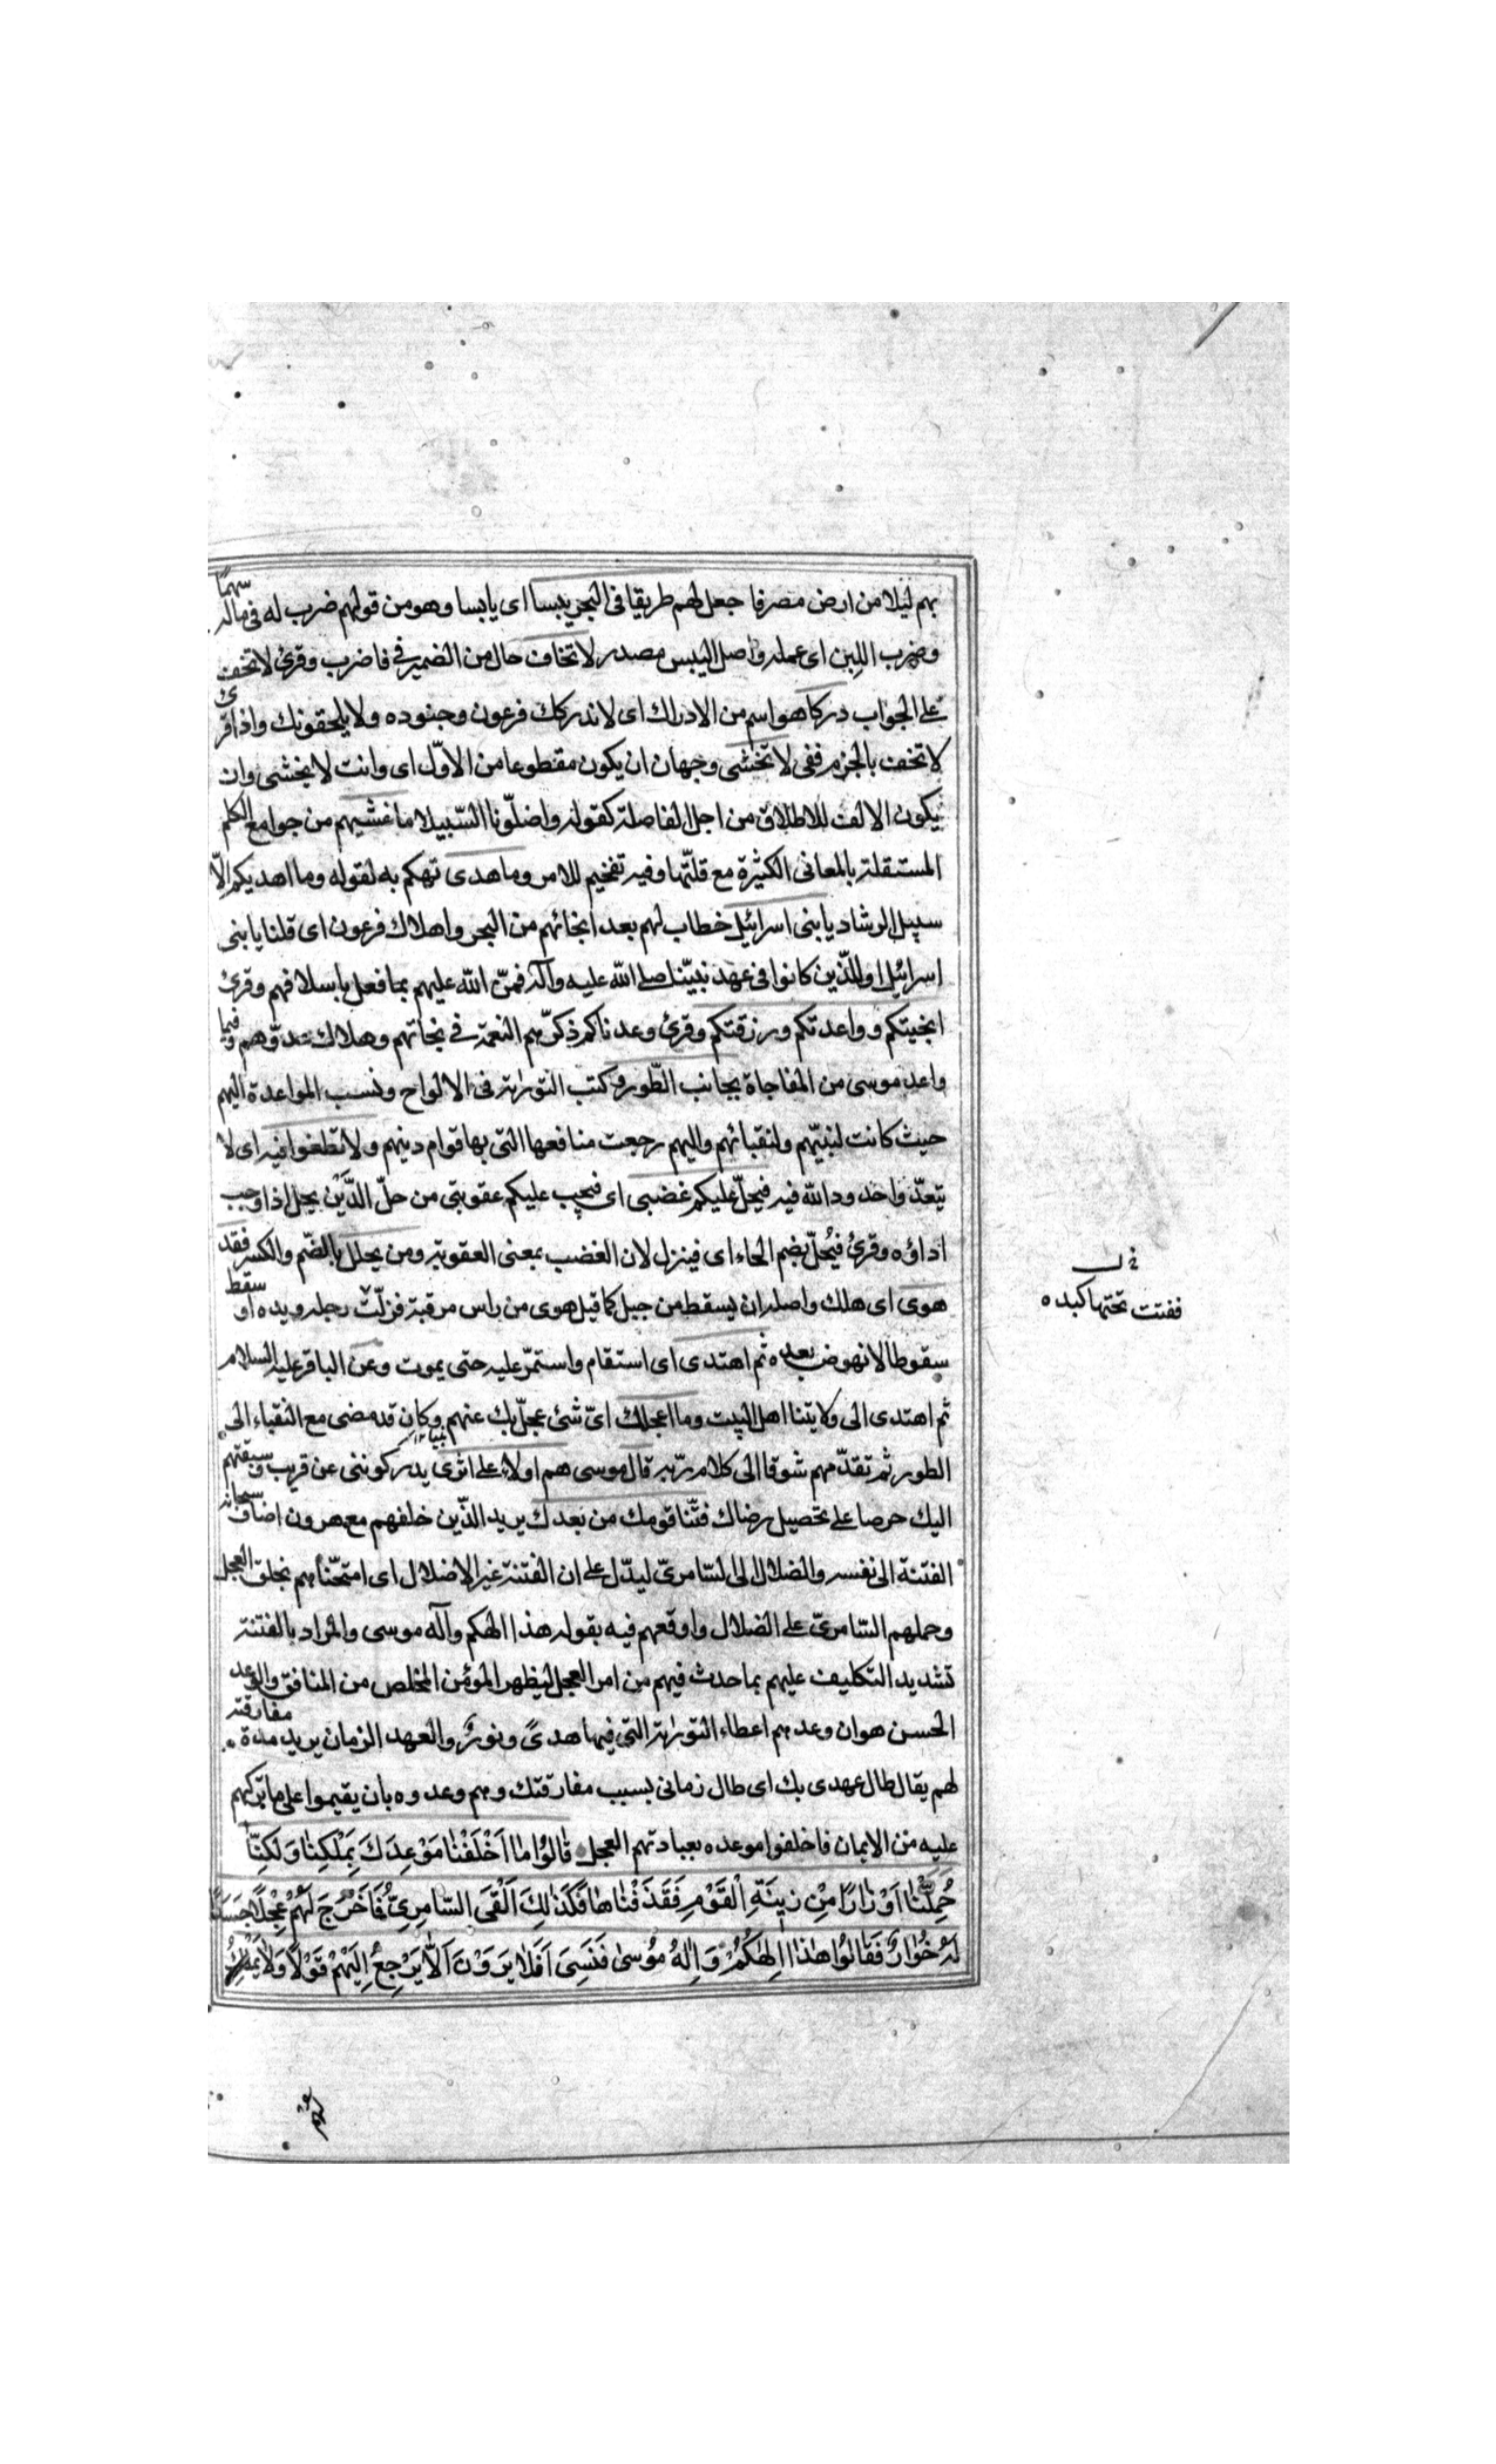 بهم ليلا من ارض مصر فا جعل لهم طريقا فى البحر يبسا اى يابسا وهو من قولهم ضرب له فى ماله سهما
وضرب اللبن اى عمله واصل اليبس مصدر لا تخاف حال من الضمير فى فاضرب وقرئ لا تخف
على الجواب دركا هو اسم من الادراك اى لا يدركك فرعون وجنوده ولا يلحقونك واذا قرئ
لا تخف بالجزم ففى لا تخشى وجهان ان يكون مقطوعا من الاوّل اى وانت لا تخشى وان
يكون الالف للاطلاق من اجل الفاصلة كقوله واضلّونا السّبيلا ما غشيهم من جوامع الكلم
المستقلة بالمعانى الكثيرة مع قلّتها وفيه تفخيم للامر وما هدى تهكم به لقوله وما اهديكم الّا
سبيل الرشاد يا بنى اسرائيل خطاب لهم بعد انجائهم من البحر واهلاك فرعون اى قلنا يا بنى
اسرائيل او للّذين كانوا فى عهد نبيّنا صلى اللّه عليه وآله فمنّ اللّه عليهم بما فعل باسلافهم وقرئ
انجيتكم وواعدتكم ورزقتكم وقرئ وعدناكم ذكّرهم النعمة فى نجاتهم وهلاك عدوّهم وفيما
واعد موسى من المفاجاة بجانب الطّور وكتب التورٰية فى الالواح ونسب المواعدة اليهم
حيث كانت لنبيّهم ولنقبائهم واليهم رجعت منافعها التى بها قوام دينهم ولا تطغوا فيه اى لا
تتعدّوا حدود اللّه فيه فيحلّ عليكم غضبى اى فيجب عليكم عقوبتى من حلّ الدَّيْن يحل اذا وجب
اداؤه وقرئ فيُحلّ بضم الحاء اى فينزل لان الغضب بمعنى العقوبة ومن يحلل بالضّم والكسر فقد
هوى اى هلك واصله ان يسقط من جبل كما قيل هوى من راس مرقبة فزلّت رجله ويده او سقط
سقوطا لا نهوض بعده ثم اهتدى اى استقام واستمرّ عليه حتى يموت وعن الباقر عليه السلام
ثم اهتدى الى ولايتنا اهل البيت وما اعجلك اىّ شئ عجّل بك عنهم وكان قد مضى مع النقباء الى
الطور ثم تقدّمهم شوقا الى كلام ربّه قال موسى هم اولاء على اثرى يدركوننى عن قريب وسبقتهم
اليك حرصا على تحصيل رضاك فتّنا قومك من بعدك يريد الذّين خلفهم مع هرون اضاف سبحانه
الفتنة الى نفسه والضلال الى السّامرىّ ليدلّ على ان الفتنة غير الاضلال اى امتحنّاهم بخلق العجل
وحملهم السّامرىّ على الضلال واوقعهم فيه بقوله هذا الهكم وآله موسى والمراد بالفتنة
تشديد التكليف عليهم بما حدث فيهم من امر العجل ليظهر المؤمن المخلص من المنافق والوعد
الحسن هو ان وعدهم اعطاء التورٰية التى فيها هدىً ونورٌ والعهد الزمان يريد مدة مفارقته
لهم يقال طال عهدى بك اى طال زمانى بسبب مفارقتك وهم وعدوه بان يقيموا على ما تركهم
عليه من الايمان فاخلفوا موعده بعبادتهم العجل قٰالُوا مٰا اَخْلَفْنٰا مَوْعِدَكَ بِمَلْكِنٰا وَلٰكِنّٰا
حُمِّلْنٰا اَوْزٰارًا مِنْ زِينَةِ الْقَوْمِ فَقَذَفْنٰاهٰا فَكَذٰلِكَ اَلْقَى السّٰامِرِىُّ فَاَخْرَجَ لَهُمْ عِجْلًا جَسَدًا
لَهُ خُوٰارٌ فَقٰالُوا هٰذٰا اِلٰهُكُمْ وَاِلٰهُ مُوسىٰ فَنَسِىَ اَفَلٰا يَرَوْنَ اَلّٰا يَرْجِعُ اِلَيْهِمْ قَوْلًا وَلٰا يَمْلِكُ
ففتت تحتها كبده